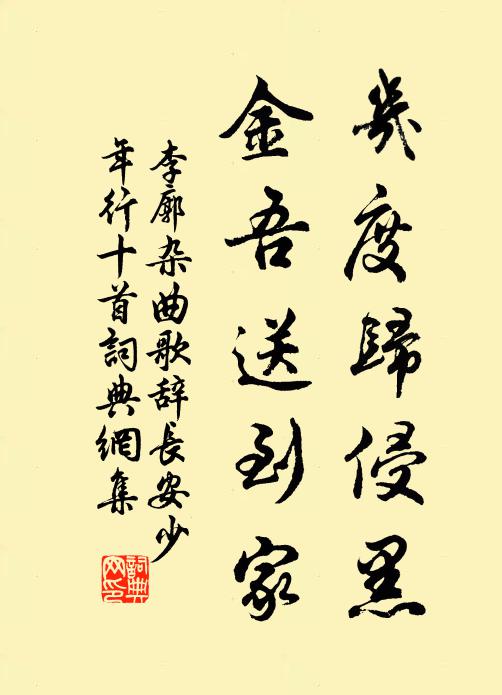 幾度歸侵黑
金吾送到家
李廓杂曲歌辞長安少
年行十首詞典網集
詞典
网印